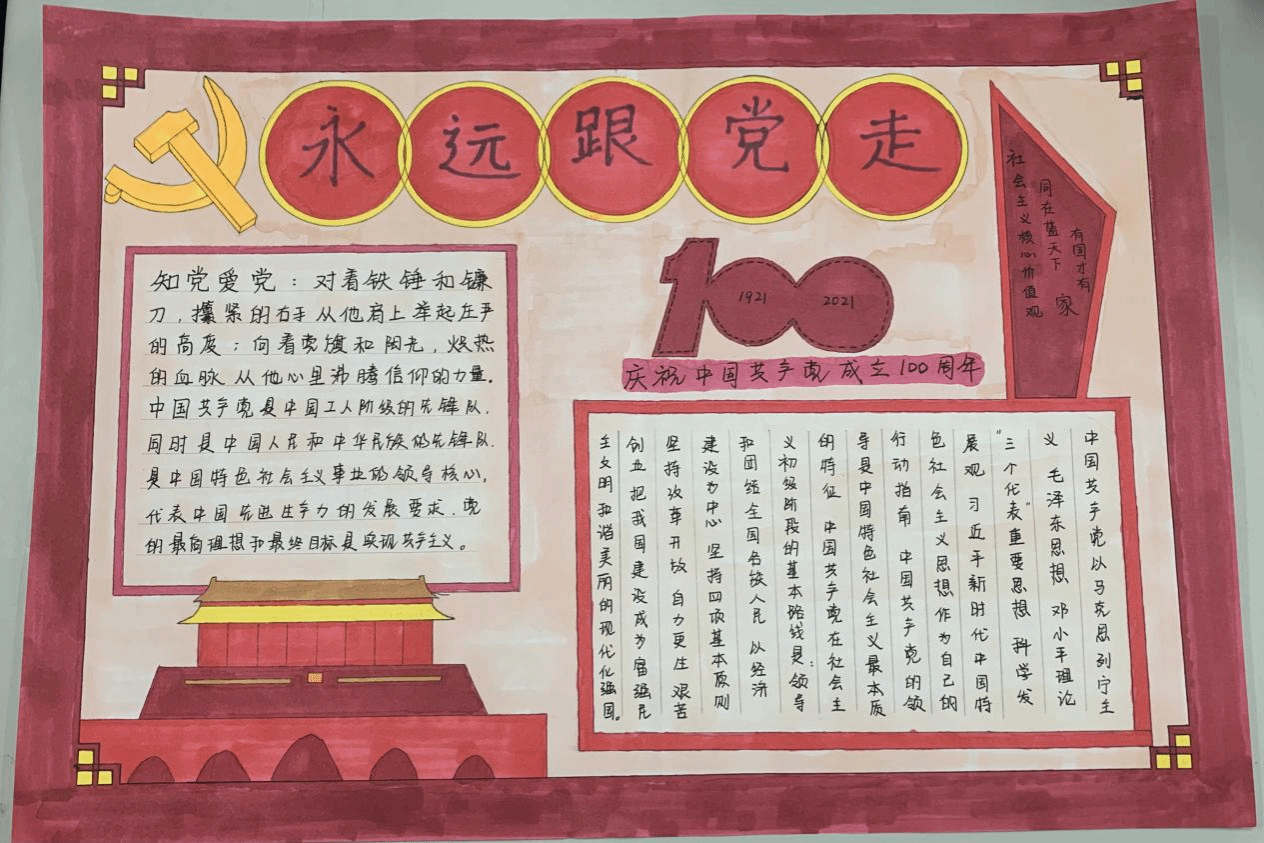 永远跟党走
社会主义核心价值观
同在蓝天下
有国才有
家
1921
2021
庆祝中国共产党成立100周年
知党爱党：对着铁锤和镰
刀，攥紧的右手从他肩上举起庄严
的高度；向着党旗和阳光，炽热
的血脉从他心里沸腾信仰的力量。
中国共产党是中国工人阶级的先锋队，
同时是中国人民和中华民族的先锋队，
是中国特色社会主义事业的领导核心，
代表中国先进生产力的发展要求，党
的最高理想和最终目标是实现共产主义。
中国共产党以马克思列宁主
义 毛泽东思想 邓小平理论
“三个代表”重要思想 科学发
展观 习近平新时代中国特
色社会主义思想作为自己的
行动指南 中国共产党的领
导是中国特色社会主义最本质
的特征 中国共产党在社会主
义初级阶段的基本路线是：领导
和团结全国各族人民 以经济
建设为中心 坚持四项基本原则
坚持改革开放 自力更生 艰苦
创业 把我国建设成为富强民
主文明和谐美丽的现代化强国。